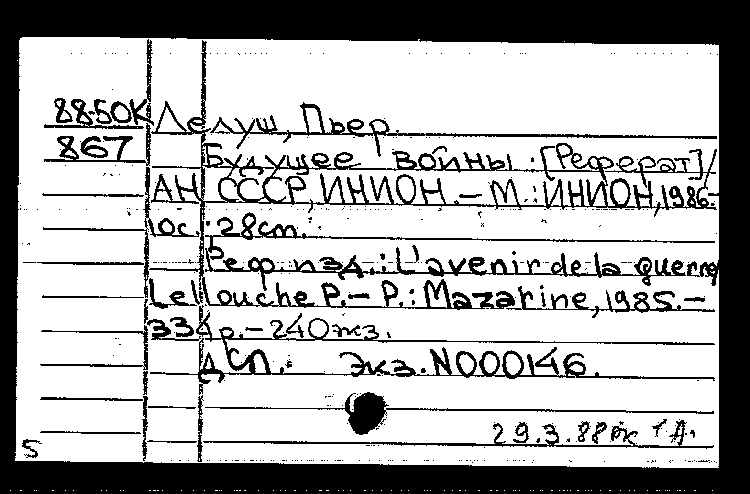 88-50К Лелуш, Пьер.
867 Будущее войны : [Реферат] /
АН СССР, ИНИОН. – М. : ИНИОН, 1986.–
10с. : 28cm.
Реф. изд. : L'avenir de la guerre
Lellouche P. – P. : Mazarine, 1985. –
334 p. – 240экз.
ДСП. Экз. N000146.
29.3.88
5